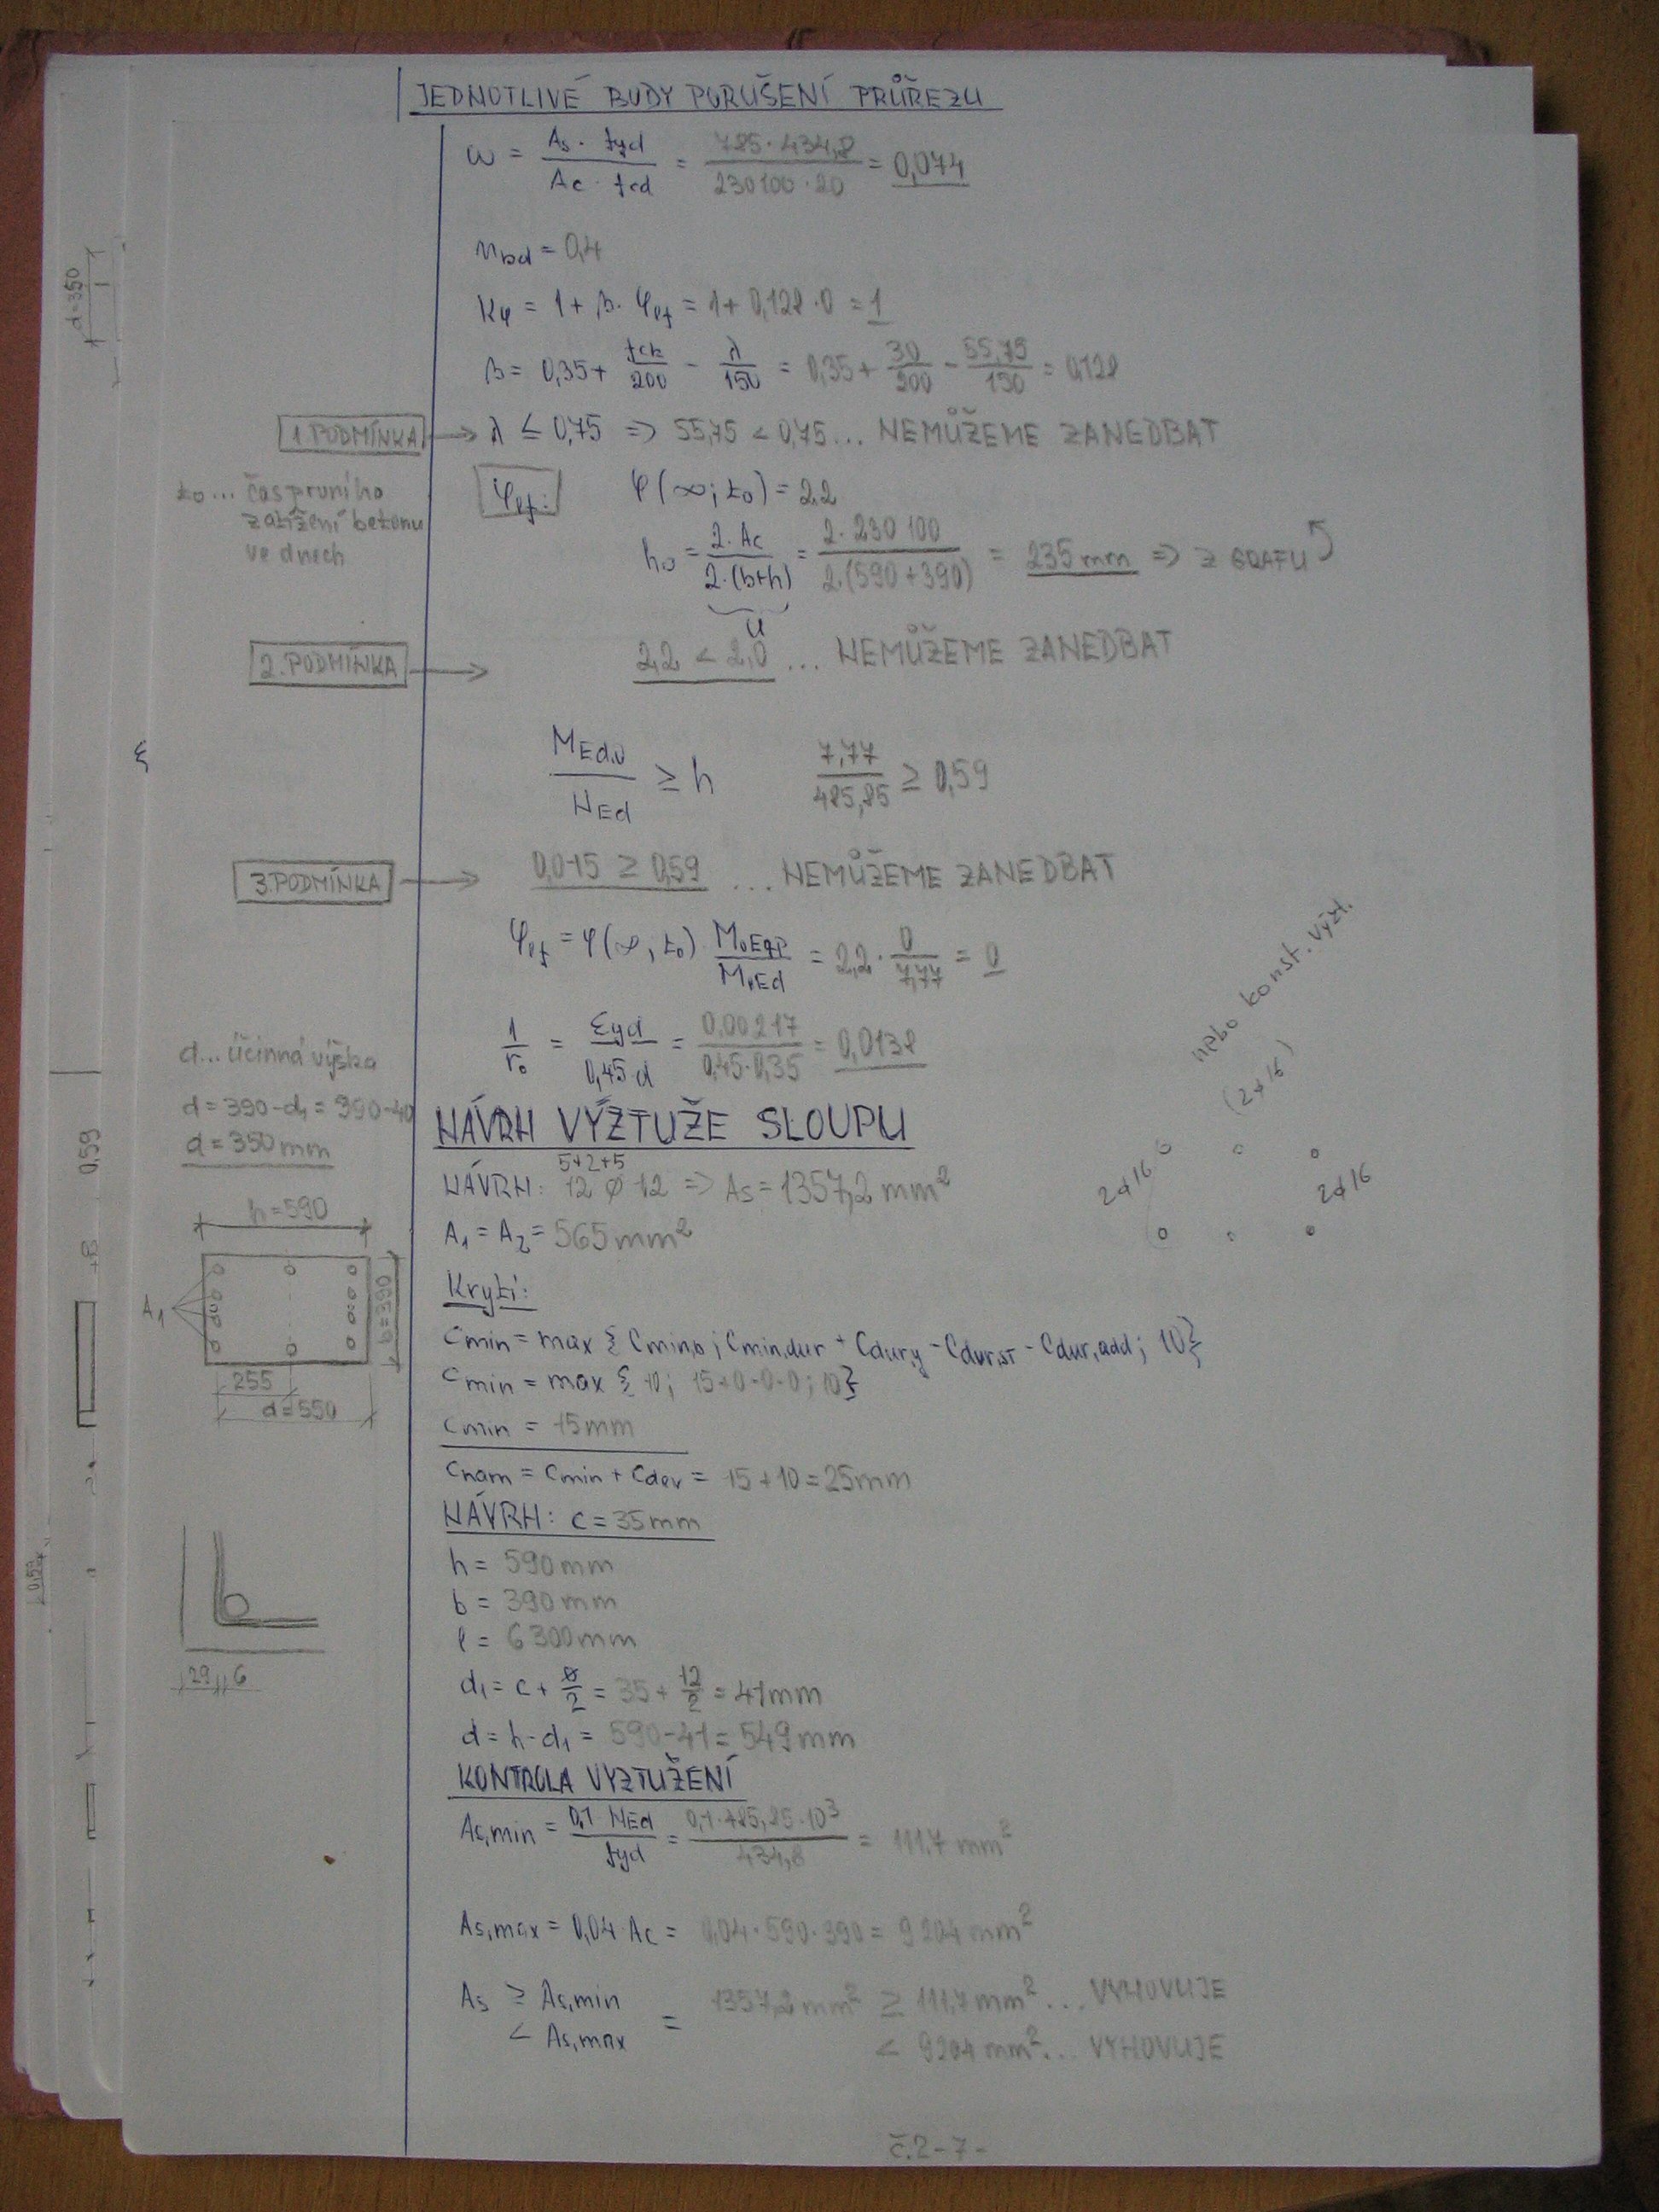 JEDNOTLIVÉ BODY PORUŠENÍ PRŮŘEZU
ω = As · fyd / Ac · fcd = 785 · 434,8 / 230100 · 20 = 0,074
nbd = 0,4
Kφ = 1 + β · φef = 1 + 0,128 · 0 = 1
β = 0,35 + fck/200 - λ/150 = 0,35 + 30/200 - 55,75/150 = 0,128
1. PODMÍNKA → λ ≤ 0,75 => 55,75 < 0,75... NEMŮŽEME ZANEDBAT
t0 ... čas prvního
zatížení betonu
ve dnech
φef: φ(∞; t0) = 2,2
h0 = 2 · Ac / 2 · (b+h) = 2 · 230 100 / 2 · (590 + 390) = 235 mm => Z GRAFU
u
2. PODMÍNKA → 2,2 < 2,0 ... NEMŮŽEME ZANEDBAT
MEd,0 / NEd ≥ h 7,77 / 485,85 ≥ 0,59
3. PODMÍNKA → 0,015 ≥ 0,59 ... NEMŮŽEME ZANEDBAT
φef = φ(∞, t0) M0Eqp / M0Ed = 2,2 · 0 / 7,77 = 0
1/r0 = εyd / 0,45 d = 0,00217 / 0,45 · 0,35 = 0,0138
d... účinná výška
d = 390 - d1 = 390 - 40
d = 350 mm
nebo konst. výzt.
2ø16
2ø16
NÁVRH VÝZTUŽE SLOUPU
5+2+5
NÁVRH: 12 ø 12 => As = 1357,2 mm²
A1 = A2 = 565 mm²
h = 590
b = 390
A1
255
d = 550
Krytí:
Cmin = max { Cmin,b ; Cmin,dur + Cdur,γ - Cdur,st - Cdur,add ; 10}
Cmin = max { 10 ; 15 + 0 - 0 - 0 ; 10}
Cmin = 15 mm
Cnom = Cmin + Cdev = 15 + 10 = 25 mm
NÁVRH: c = 35 mm
h = 590 mm
b = 390 mm
l = 6 300 mm
29 6
d1 = c + ø/2 = 35 + 12/2 = 41 mm
d = h - d1 = 590 - 41 = 549 mm
KONTROLA VYZTUŽENÍ
As,min = 0,1 NEd / fyd = 0,1 · 485,85 · 10³ / 434,8 = 111,7 mm²
As,max = 0,04 · Ac = 0,04 · 590 · 390 = 9204 mm²
As ≥ As,min = 1357,2 mm² ≥ 111,7 mm² ... VYHOVUJE
< As,max < 9204 mm² ... VYHOVUJE
č.2 - 7 -
d = 350
0,59